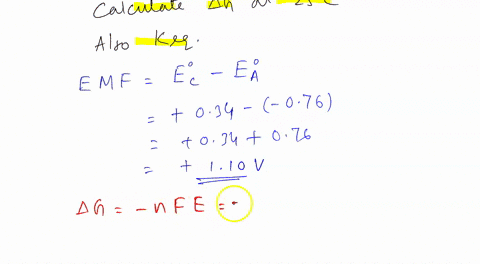 Calculate ΔG at 25°C
Also Keq.
EMF = E°C - E°A
= + 0.34 - (-0.76)
= + 0.34 + 0.76
= + 1.10 V
ΔG = - n F E =